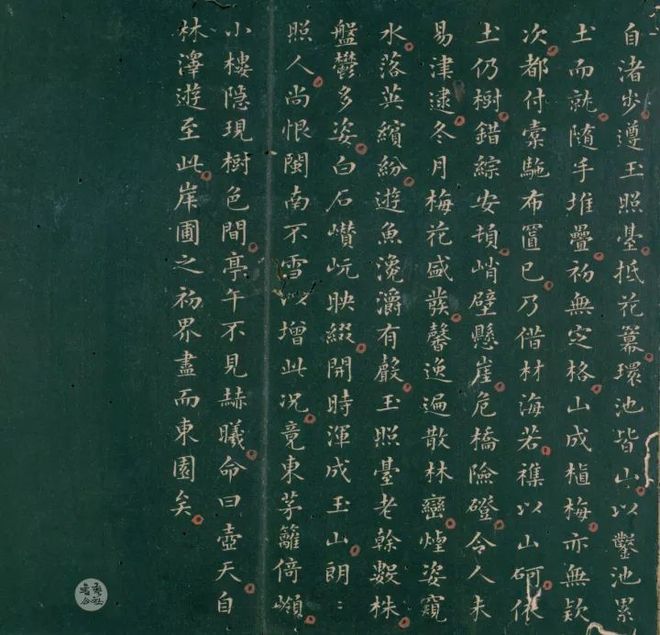 自渚步遵玉照臺抵花羃環池皆山以鑿池累
土而就隨手堆疊初無定格山成植梅亦無款
次都付橐駞布置已乃借材海若襍以山砢依
土仍樹錯綜安頓峭壁懸崖危橋險磴令人未
易津逮冬月梅花盛發馨逸遍散林巒煙姿窺
水落英繽紛遊魚瀺灂有聲玉照臺老榦數株
盤鬱多姿白石巑岏映綴開時渾成玉山朗〻
照人尚恨閩南不雪以增此况竟東茅籬倚嶺
小樓隐現樹色間亭午不見赫曦命曰壺天自
林澤遊至此岸圃之初界盡而東園矣